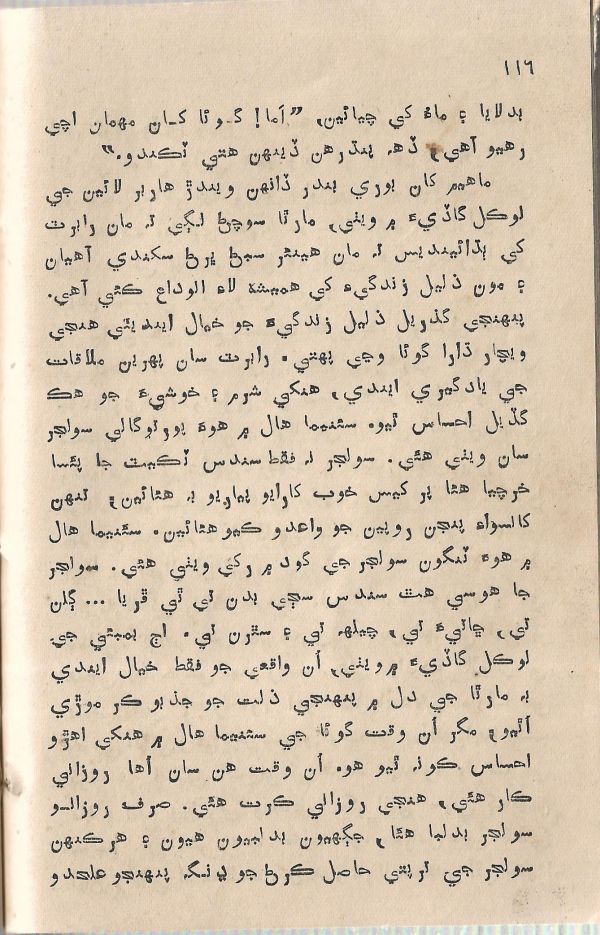 ١١٦
بدلايا ۽ ماءُ کي چيائين، ”اَما! گوئا کان مهمان اچي
رهيو آهي، ڏهہ پندرهن ڏينهن هتي ٽڪندو.“
ماهيم کان بوري بندر ڏانهن ويندڙ هاربر لائين جي
لوڪل گاڏيءَ ۾ ويٺي، مارٿا سوچڻ لڳي تہ مان رابرٽ
کي ٻڌائينديس تہ مان هينئر سڀڻ ڀرڻ سکندي آهيان
۽ مون ذليل زندگيءَ کي هميشہ لاءِ الوداع ڪئي آهي.
پنهنجي گذريل ذليل زندگيءَ جو خيال ايندي ئي هنجي
ويچار ڌارا گوئا وڃي پهتي. رابرٽ سان پهرين ملاقات
جي يادگيري ايندي، هنکي شرم ۽ خوشيءَ جو هڪ
گڏيل احساس ٿيو. سئنيما هال ۾ هوءَ پورتوگالي سولجر
سان ويٺي هئي. سولجر نہ فقط سندس ٽڪيٽ جا پئسا
خرچيا هئا پر کيس خوب کارايو پياريو بہ هئائين، تنهن
کانسواءِ پنجن روپين جو واعدو ڪيو هئائين. سئنيما هال
۾ هوءَ ٽنگون سولجر جي گود ۾ رکي ويٺي هئي. سولجر
جا هوسي هٿ سندس سڄي بدن تي ٿي ڦريا ... ڳلن
تي، ڇاتيءَ تي، چيلهہ تي ۽ سٿرن تي. اڄ بمبئي جي
لوڪل گاڏيءَ ۾ ويٺي، اُن واقعي جو فقط خيال ايندي
بہ مارٿا جي دل ۾ پنهنجي ذلت جو جذبو ڪر موڙي
اٿيو، مگر اُن وقت گوئا جي سئنيما هال ۾ هنکي اهڙو
احساس ڪونہ ٿيو هو. اُن وقت هن سان اُها روزاني
ڪار هئي، هنجي روزاني ڪرت هئي. صرف روزانو
سولجر بدلبا هئا، جڳهيون بدلبيون هيون ۽ هرڪنهن
سولجر جي ترپتي حاصل ڪرڻ جو ڍنگہ پنهنجو علحدو